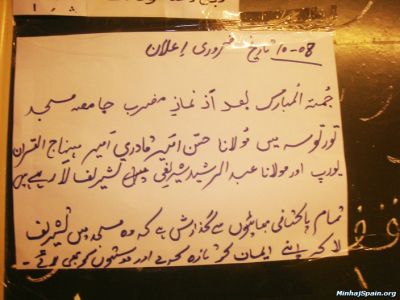 10-08 تاریخ ضروری اعلان
جمعۃ المبارک بعد از نماز مغرب جامعہ مسجد
تورتوسہ میں مولانا حسن امیر قادری امیر منہاج القرآن
یورپ اور مولانا عبدالرشید شریفی تشریف لا رہے ہیں
تمام پاکستانی بھائیوں سے گذارش ہے کہ وہ مسجد میں تشریف
لا کر اپنے ایمان کو تازہ کریں اور دوستوں کو بھی
MinhajSpain.org